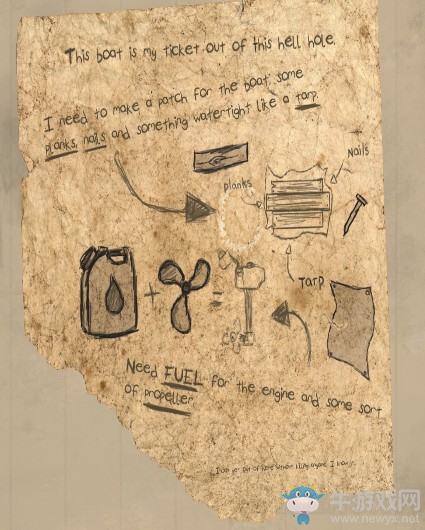 This boat is my ticket out of this hell hole.
I need to make a patch for the boat, some
planks, nails and something watertight like a tarp.
Nails
planks
Tarp
Need FUEL for the engine and some sort
of propeller
I can get out of here without killing anyone, I know it.
牛游戏网
www.newyx.net